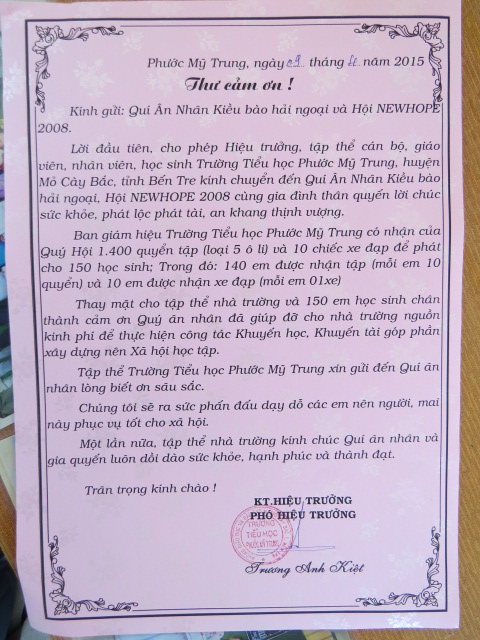 Phước Mỹ Trung, ngày 09 tháng năm 2015
Thư cảm ơn !
Kính gửi: Quí Ân Nhân Kiều bào hải ngoại và Hội NEWHOPE
2008.
Lời đầu tiên, cho phép Hiệu trưởng, tập thể cán bộ, giáo
viên, nhân viên, học sinh Trường Tiểu học Phước Mỹ Trung, huyện
Mỏ Cày Bắc, tỉnh Bến Tre kính chuyển đến Quí Ân Nhân Kiều bào
hải ngoại, Hội NEWHOPE 2008 cùng gia đình thân quyến lời chúc
sức khỏe, phát lộc phát tài, an khang thịnh vượng.
Ban giám hiệu Trường Tiểu học Phước Mỹ Trung có nhận của
Quý Hội 1.400 quyển tập (loại 5 ô li) và 10 chiếc xe đạp để phát
cho 150 học sinh; Trong đó: 140 em được nhận tập (mỗi em 10
quyển) và 10 em được nhận xe đạp (mỗi em 01xe)
Thay mặt cho tập thể nhà trường và 150 em học sinh chân
thành cảm ơn Quý ân nhân đã giúp đỡ cho nhà trường nguồn
kinh phí để thực hiện công tác Khuyến học, Khuyến tài góp phần
xây dựng nên Xã hội học tập.
Tập thể Trường Tiểu học Phước Mỹ Trung xin gửi đến Quí ân
nhân lòng biết ơn sâu sắc.
Chúng tôi sẽ ra sức phấn đấu dạy dỗ các em nên người, mai
này phục vụ tốt cho xã hội.
Một lần nữa, tập thể nhà trường kính chúc Quí ân nhân và
gia quyến luôn dồi dào sức khỏe, hạnh phúc và thành đạt.
Trân trọng kính chào !
KT.HIỆU TRƯỞNG
PHÓ HIỆU TRƯỞNG
TRƯỜNG
TIỂU HỌC
PHƯỚC MỸ TRUNG
Trương Anh Kiệt